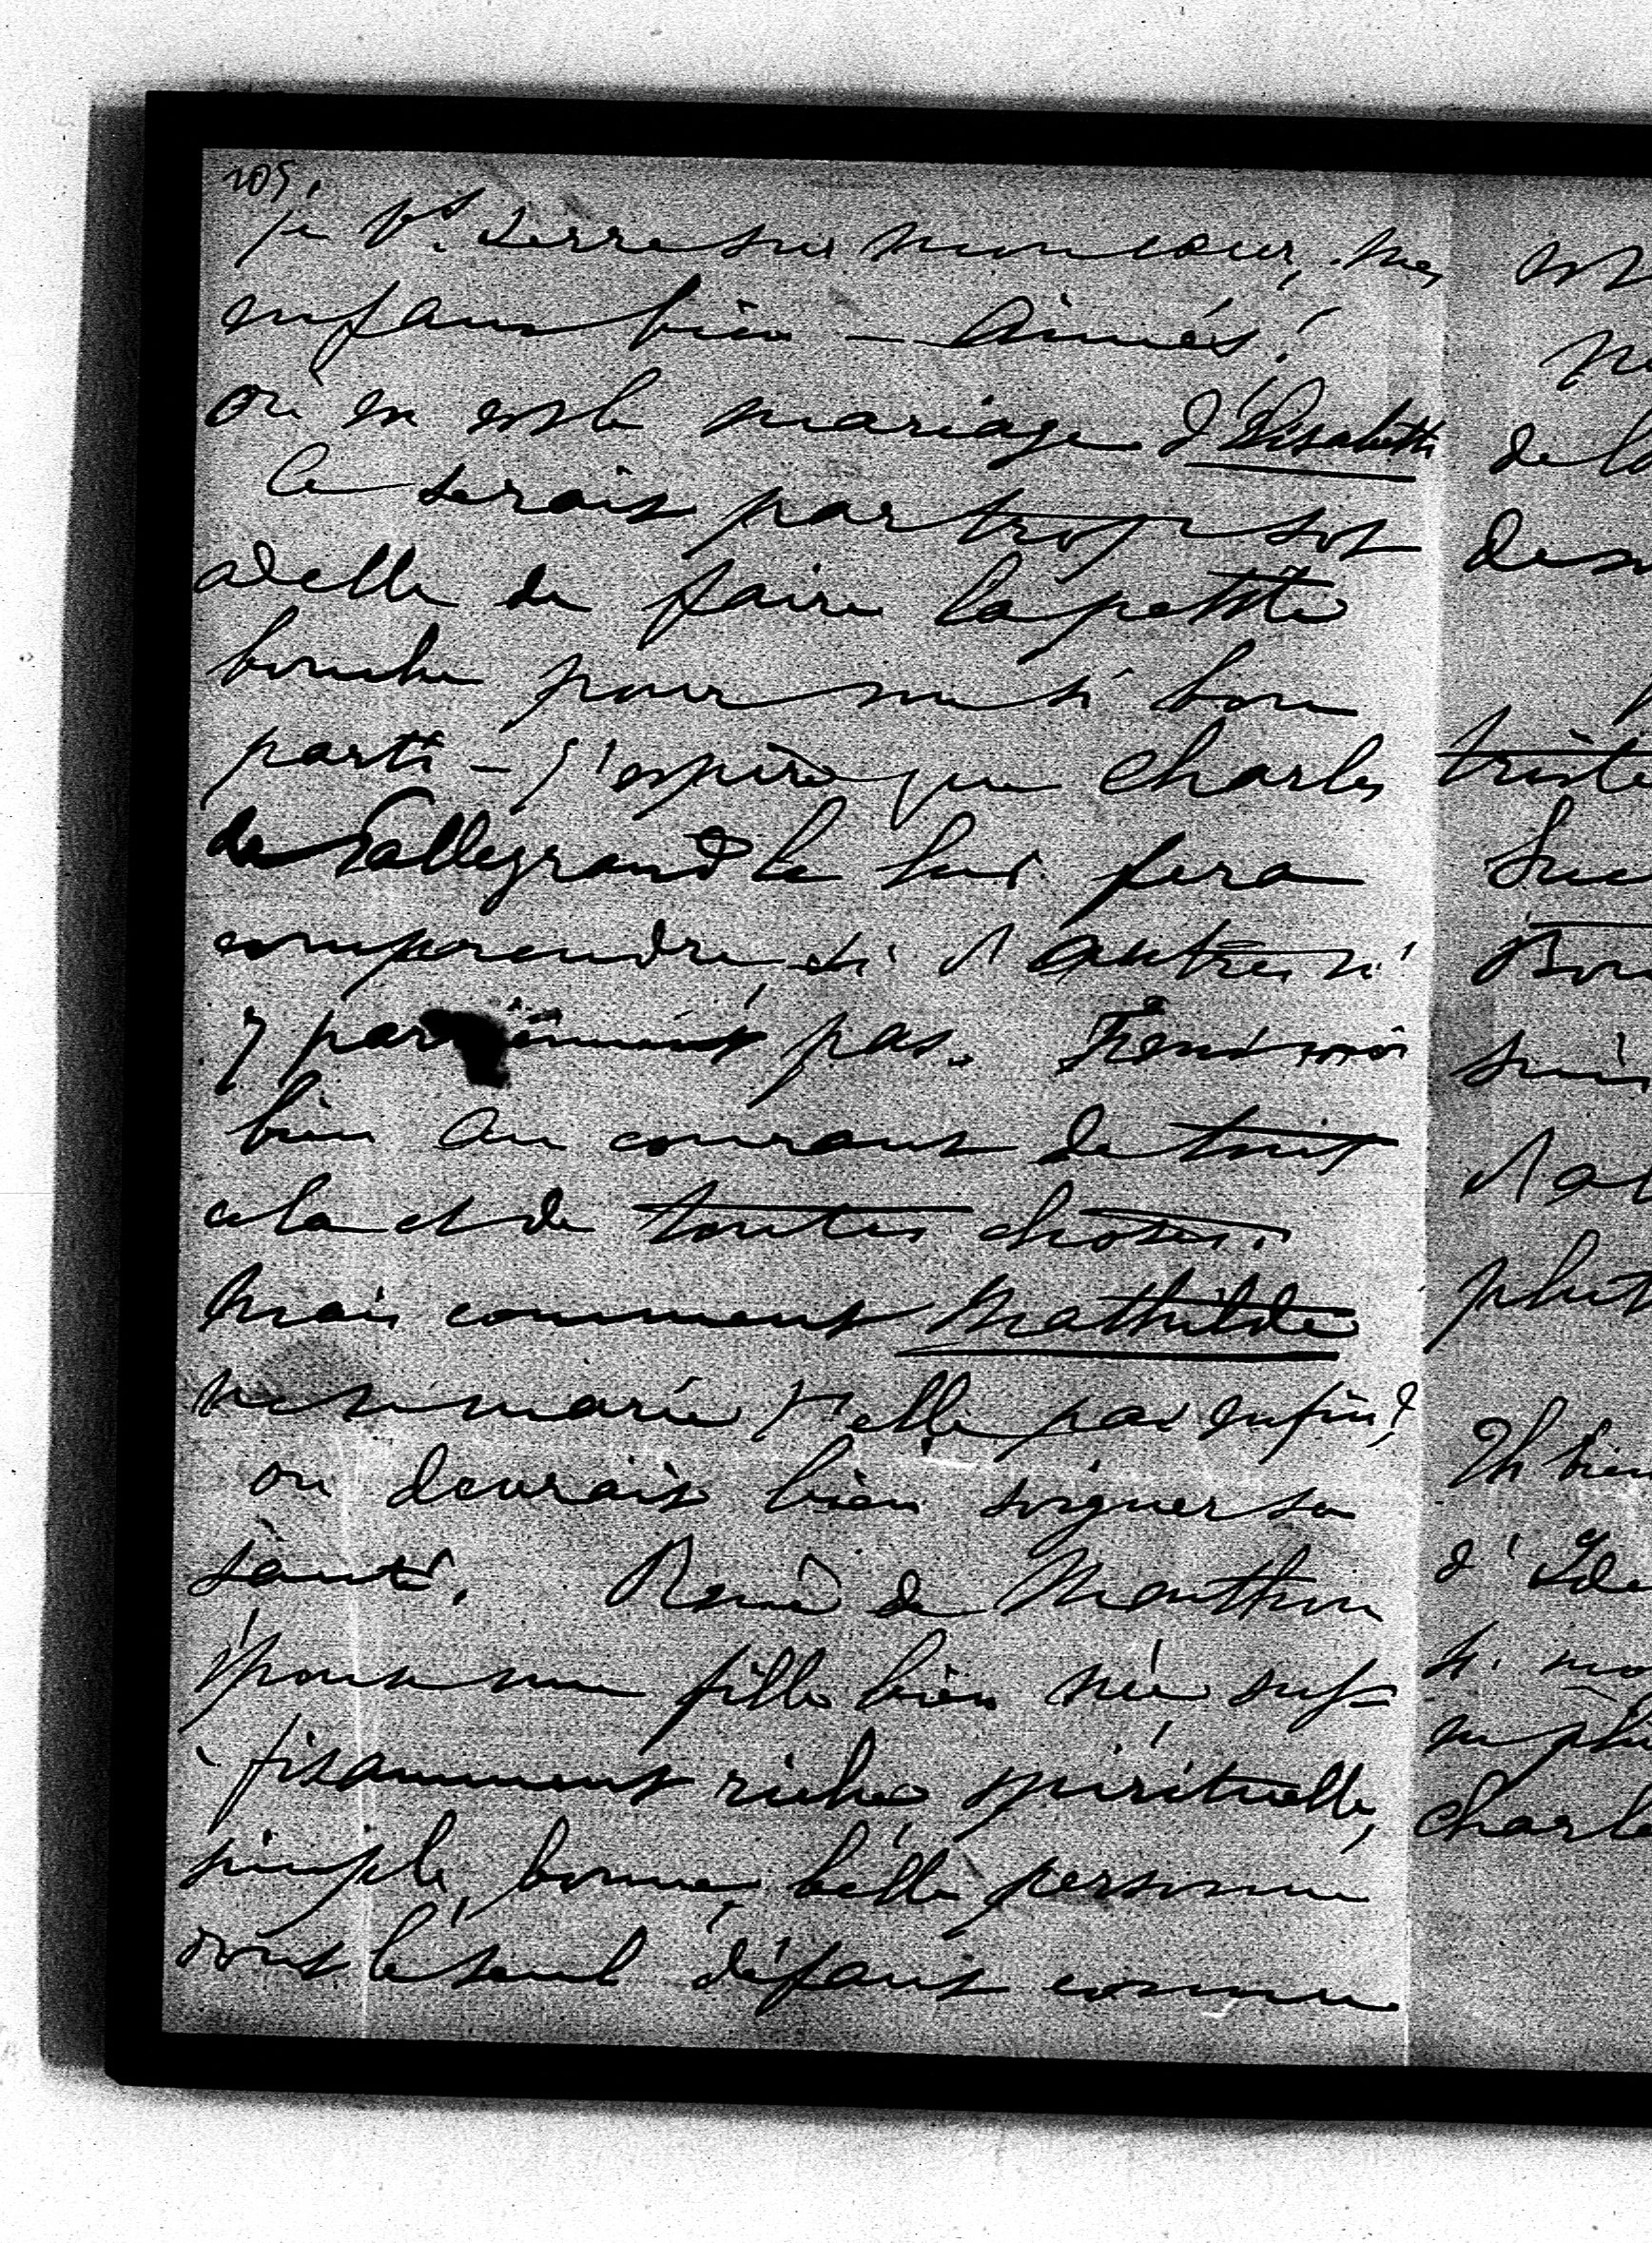 105.
je vs. serre sur mon cœur, mes
enfans bien-aimés!
où en est le mariage d'Elisabeth
Ce serait par trop sot
à elle de faire la petite
bouche pour un si bon
parti - j'espère que Charles
de Sallegrand le lui fera
comprendre, si d'autres n'
y parviennent pas. Tiens moi
bien au courant de tout
cela et de toutes choses.
Mais comment Mathilde
ne se marie t'elle pas enfin?
on devrait bien soigner sa
santé. René de Menthon
épouse une fille bien née suf=
fisamment riche, spirituelle,
simple, bonne, belle personne
dont le seul défaut connu
de la
triste
plut
Eh bien
d'Ide
en plu
Charle